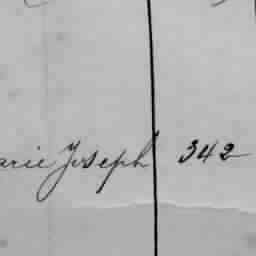 arie Joseph 342